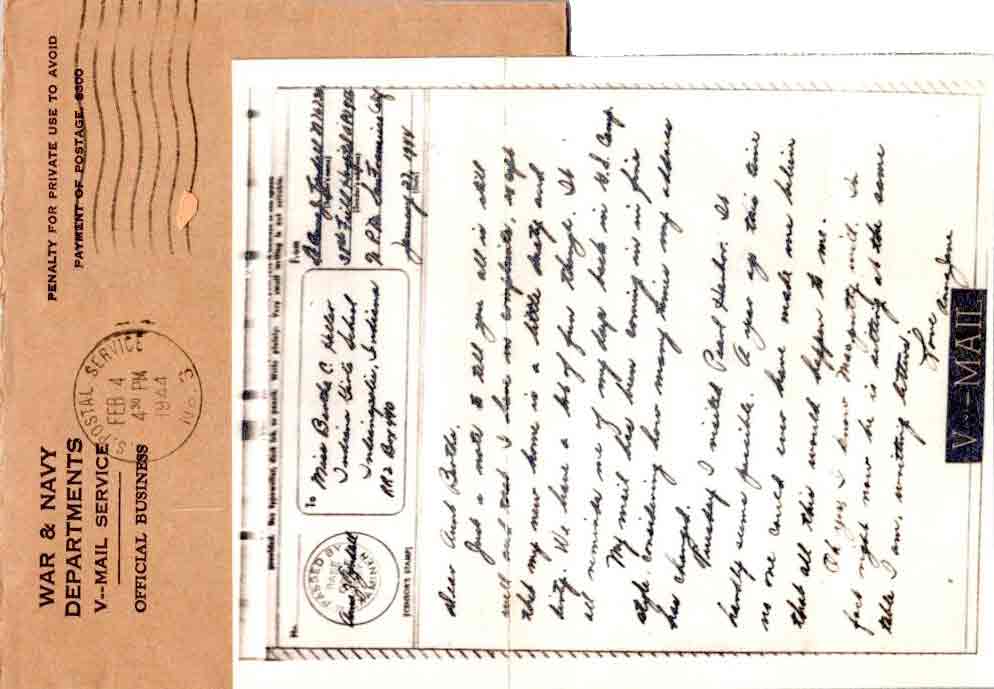 WAR & NAVY
DEPARTMENTS
V--MAIL SERVICE
OFFICIAL BUSINESS
PENALTY FOR PRIVATE USE TO AVOID
PAYMENT OF POSTAGE, $300
U.S. POSTAL SERVICE
FEB 4
4 30 PM
1944
No. 3
No.
PASSED BY
BASE
EXAMINER
(CENSOR'S STAMP)
To
Miss Bertha C.
Indiana Girls School
Indianapolis, Indiana
RR 2 Box 440
From
A.P.O. San Francisco Calif
January 27, 1944
Dear Aunt Bertha,
Just a note to tell you all is still
well and that I have no complaints, except
that my new home is a little dusty and
dirty. We have a bit of fun though. It
all reminds me of my days back in U.S. Camp.
My mail has been coming in in fine
style considering how many times my address
has changed.
Tuesday I visited Pearl Harbor. It
hardly seems possible. A year ago this time
no one could ever have made me believe
that all this would happen to me.
Oh yes, I know Margaret well. In
fact right now he is sitting at the same
table I am, writing letters.
Love
V--MAIL